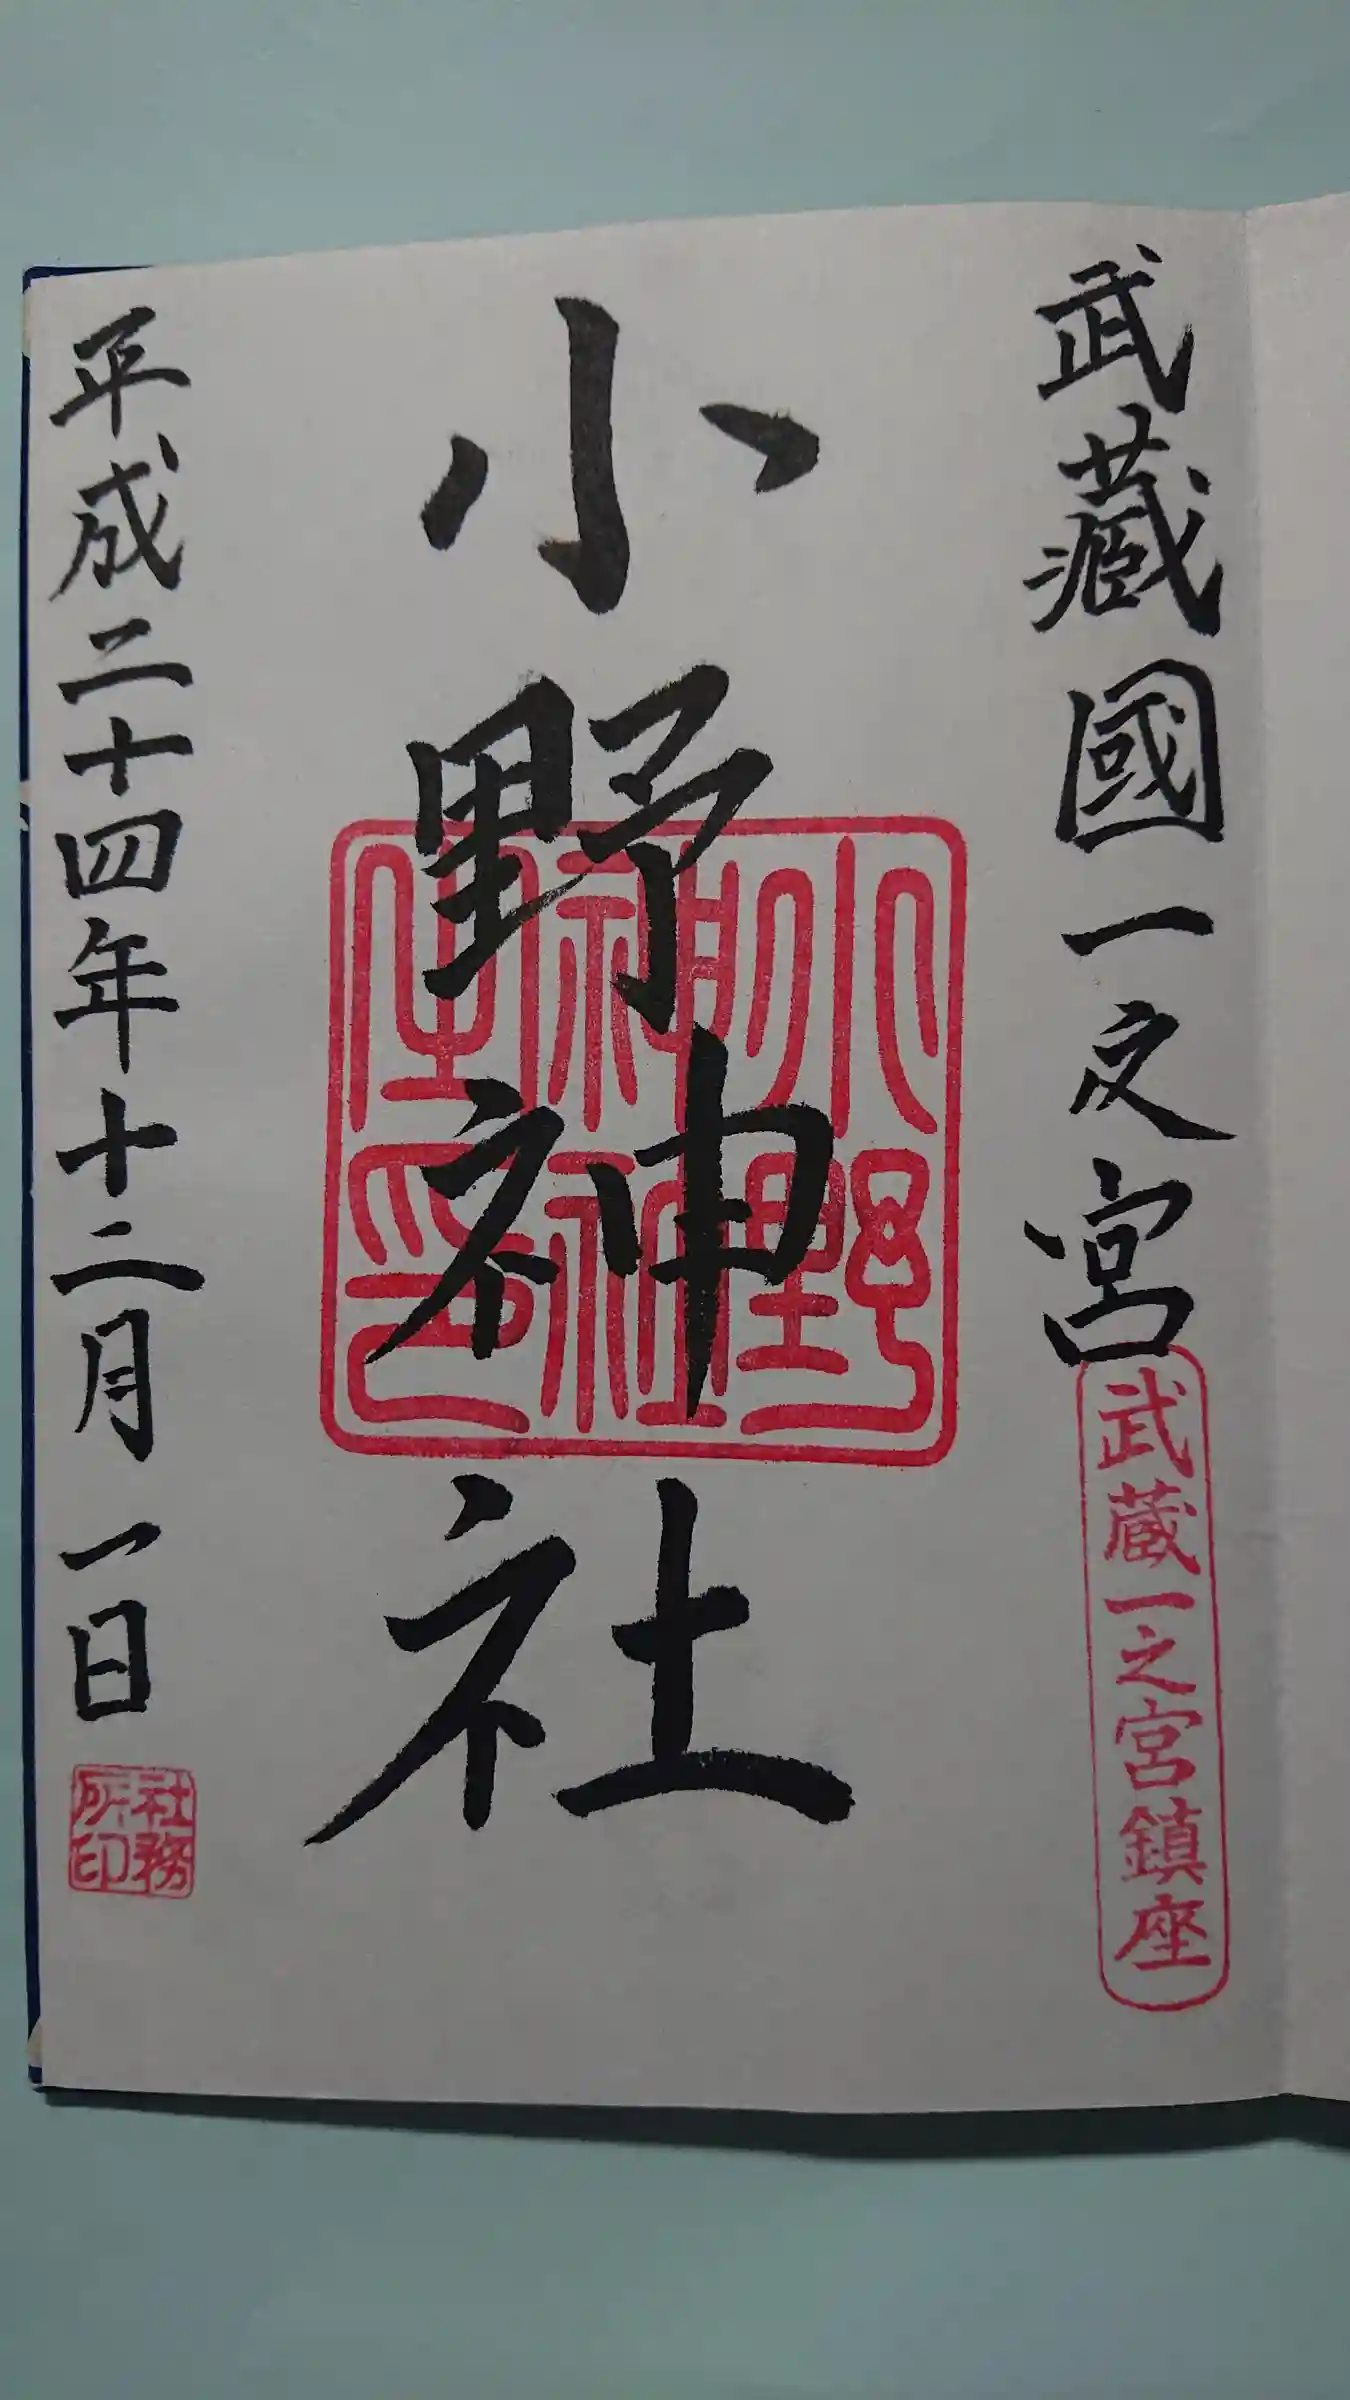 武藏國一之宮
武蔵一之宮鎮座
小野神社
小野神社之印
平成二十四年十二月一日
社務所印